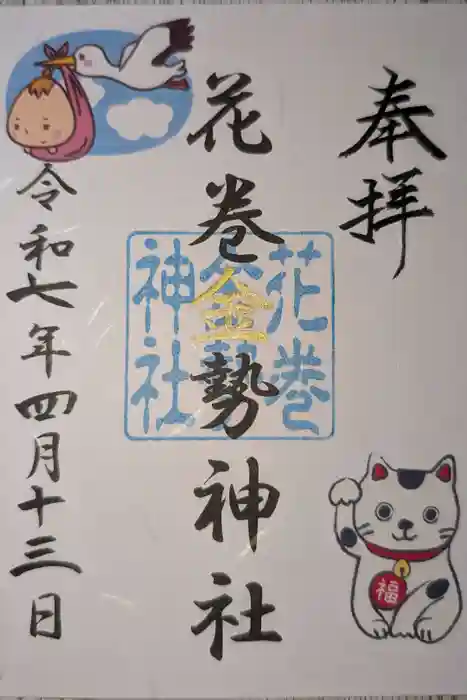 奉拝
花巻金勢神社
花巻
金勢
神社
令和七年四月十三日
福